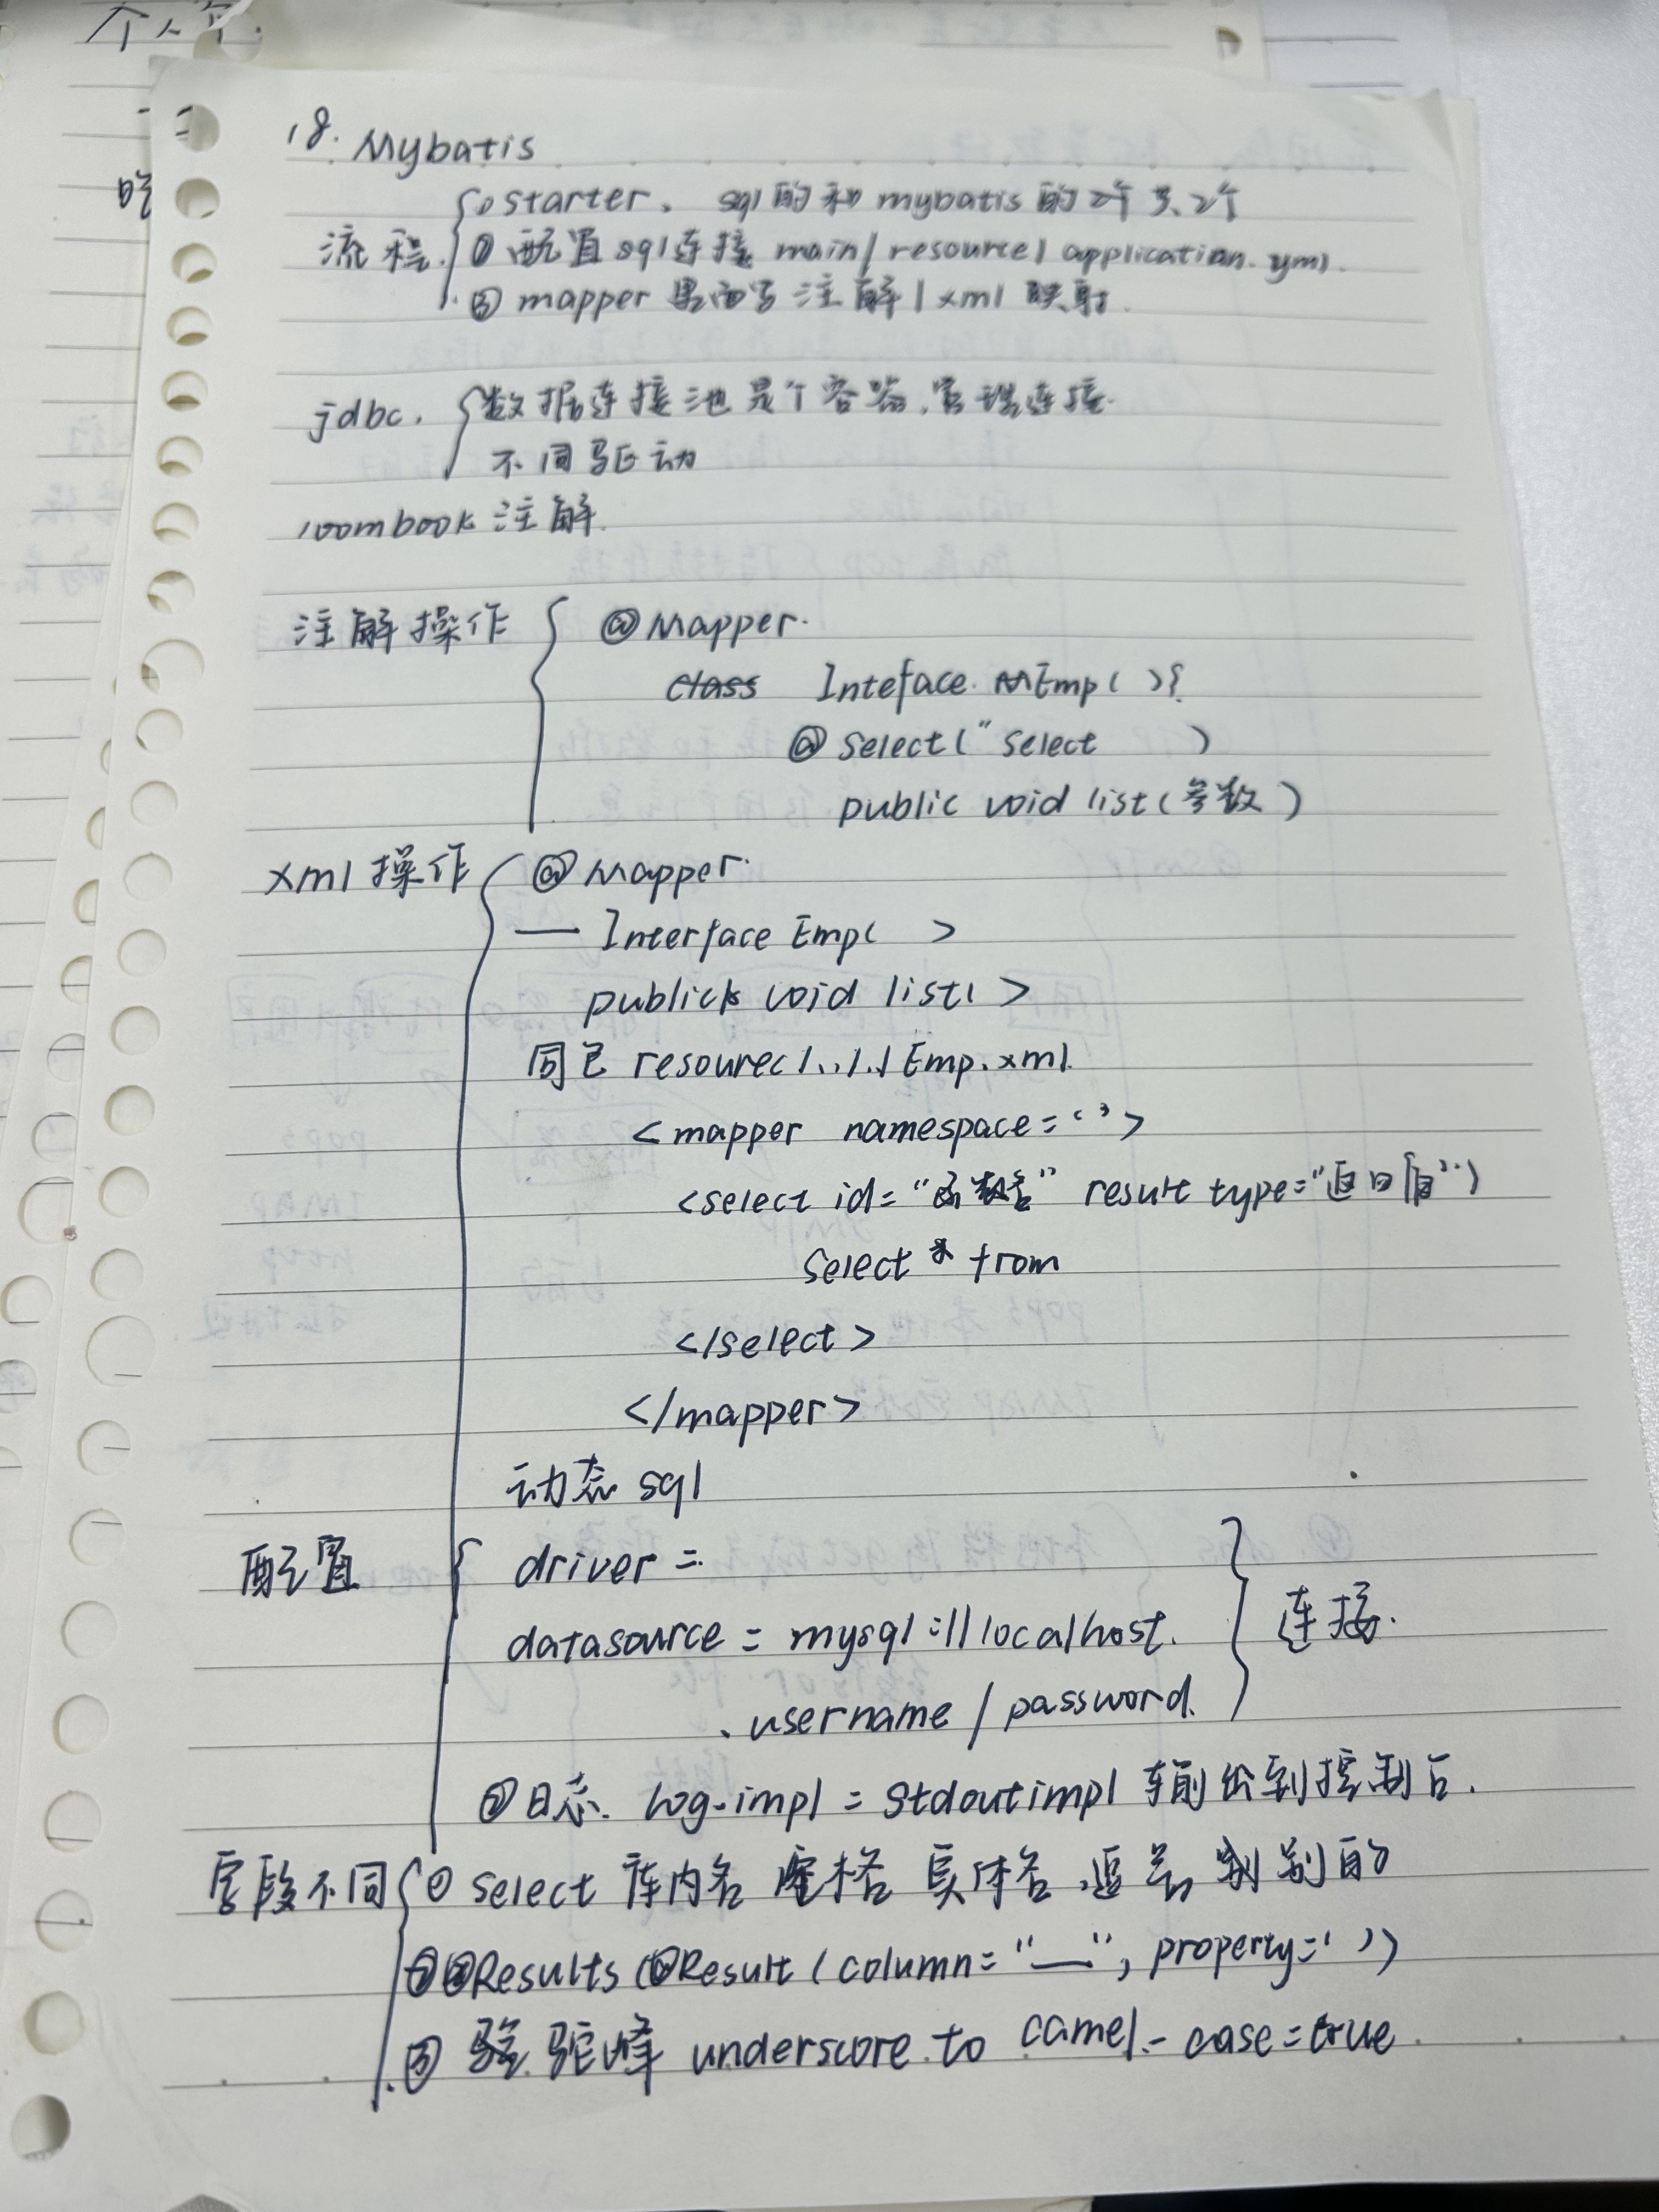 18. Mybatis
流程 ① starter、 sql的和 mybatis 的2个
② 配置 sql连接 main/resource/application.yml.
③ mapper 里面写 注解 / xml 映射.
jdbc. 数据连接池是个容器,管理连接.
不同驱动
loombook 注解.
注解操作 @Mapper.
class Inteface. MEmp( ){
@Select("Select )
public void list(参数)
xml操作 @Mapper.
— Interface Emp( >
public void list( >
同包 resourec/../../Emp.xml.
<mapper namespace=‘’>
<select id="函数名" result type="返回值")
Select * from
</select>
</mapper>
动态sql
配置 driver =.
datasource = mysql://localhost. 连接.
.username / password.
②日志. log-impl = Stdoutimpl 输出到控制台.
字段不同 ① select 库内名 实体名
②@Results(@Result(column="—",property=' '))
③ 驼峰 underscore.to camel-case=true